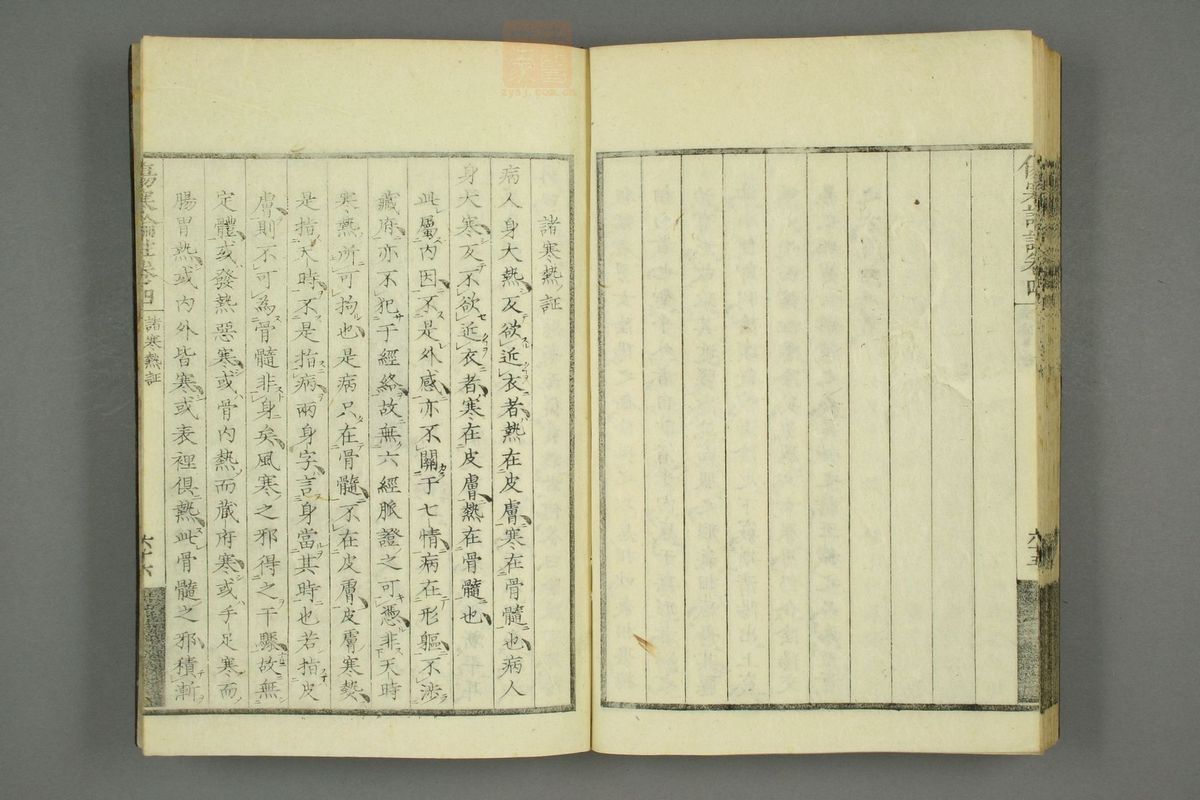 六十五
諸寒熱証
病人身大熱反欲近衣者熱在皮膚寒在骨髓也病人
身大寒反不欲近衣者寒在皮膚熱在骨髓也
此屬內因不是外感亦不關于七情病在形軀不涉
藏府亦不犯于經絡故無六經脈證之可憑非天時
寒熱所可拘也是病只在骨髓不在皮膚皮膚寒熱
是指天時不是指病兩身字言身當其時也若指皮
膚則不可為骨髓非身矣風寒之邪得之干驟故無
定體或發熱惡寒或骨內熱而藏府寒或手足寒而
腸胃熱或內外皆寒或表裡俱熱此骨髓之邪積漸
傷寒論註卷四
諸寒熱証
六十六
zysj.com.cn